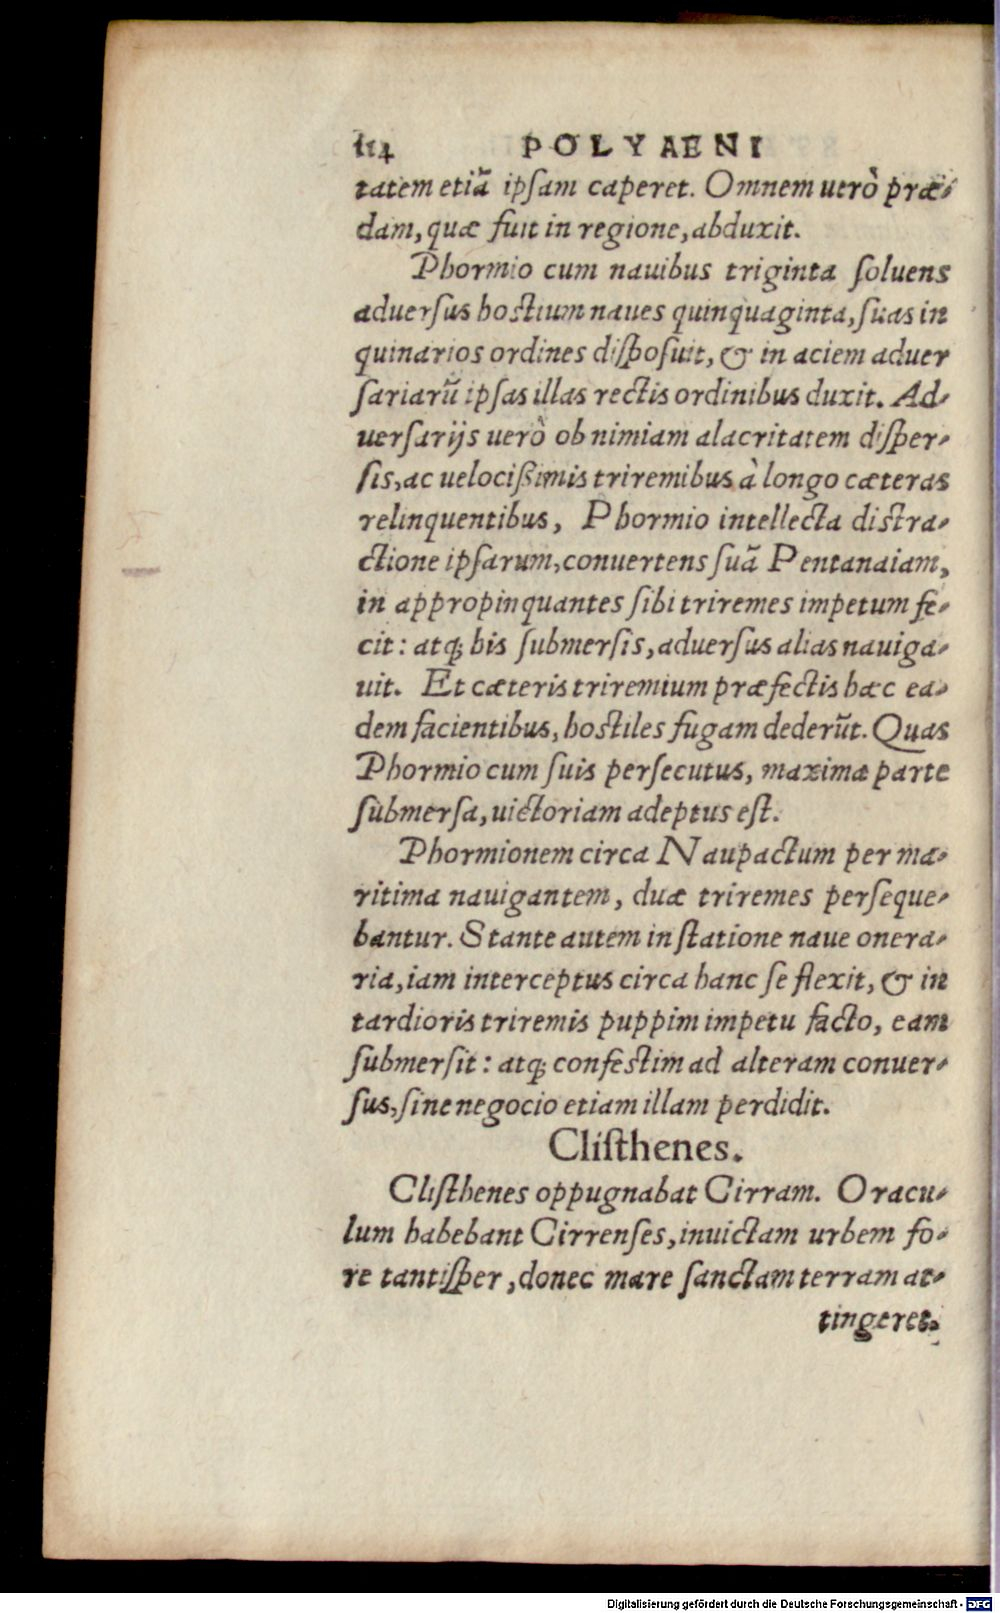 114 POLYAENI
tatem etiã ipsam caperet. Omnem uerò præ-
dam, quæ fuit in regione, abduxit.
Phormio cum nauibus triginta soluens
aduersus hostium naues quinquaginta, suas in
quinarios ordines disposuit, & in aciem aduer
sariarũ ipsas illas rectis ordinibus duxit. Ad-
uersarijs uerò ob nimiam alacritatem disper-
sis, ac uelocißimis triremibus à longo cæteras
relinquentibus, Phormio intellecta distra-
ctione ipsarum, conuertens suã Pentanaiam,
in appropinquantes sibi triremes impetum fe-
cit: atq; his submersis, aduersus alias nauiga-
uit. Et cæteris triremium præfectis hæc ea-
dem facientibus, hostiles fugam dederũt. Quas
Phormio cum suis persecutus, maxima parte
submersa, uictoriam adeptus est.
Phormionem circa Naupactum per ma-
ritima nauigantem, duæ triremes perseque-
bantur. Stante autem in statione naue onera-
ria, iam interceptus circa hanc se flexit, & in
tardioris triremis puppim impetu facto, eam
submersit: atq; confestim ad alteram conuer-
sus, sine negocio etiam illam perdidit.
Clisthenes.
Clisthenes oppugnabat Cirram. Oracu-
lum habebant Cirrenses, inuictam urbem fo-
re tantisper, donec mare sanctam terram at-
tingeret.
Digitalisierung gefördert durch die Deutsche Forschungsgemeinschaft - DFG